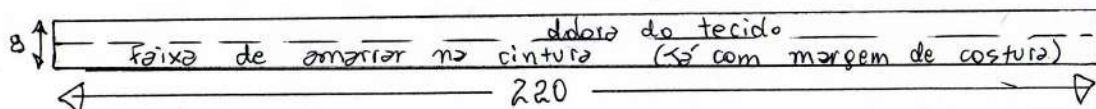 dobra do tecido
8
Faixa de amarrar na cintura (Já com margem de costura)
220